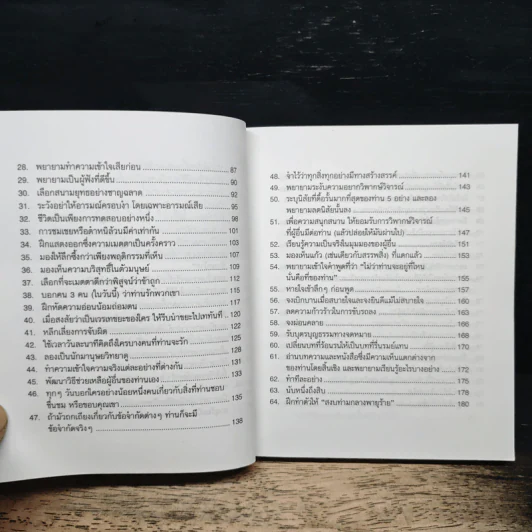 28. พยายามทำความเข้าใจเสียก่อน 87
29. พยายามเป็นผู้ฟังที่ดีขึ้น 90
30. เลือกสนามยุทธอย่างชาญฉลาด 92
31. ระวังอย่าให้อารมณ์ครอบงำ โดยเฉพาะอารมณ์เสีย 95
32. ชีวิตเป็นเพียงการทดสอบอย่างหนึ่ง 98
33. การชมเชยหรือด่าหนิล้วนมีค่าเท่ากัน 101
34. ฝึกแสดงออกซึ่งความเมตตาเป็นครั้งคราว 103
35. มองให้ลึกซึ้งกว่าเพียงพฤติกรรมที่เห็น
36. มองเห็นความบริสุทธิ์ในตัวมนุษย์
37. เลือกที่จะเมตตาดีกว่าพิสูจน์ว่าข้าถูก
38. บอกคน 3 คน (ในวันนี้) ว่าท่านรักพวกเขา
39. ฝึกหัดความอ่อนน้อมถ่อมตน
40. เมื่อสงสัยว่าเป็นเวรทขยะของใคร ให้รีบนำขยะไปเททันที
41. หลีกเลี่ยงการจับผิด
42. ใช้เวลาวันละนาทีคิดถึงใครบางคนที่ท่านจะรัก
43. ลองเป็นนักมานุษยวิทยาดู 128
44. ทำความเข้าใจความจริงแต่ละอย่างที่ต่างกัน 130
45. พัฒนาวิธีช่วยเหลือผู้อื่นของท่านเอง 133
46. ทุกๆ วันบอกใครอย่างน้อยหนึ่งคนเกี่ยวกับสิ่งที่ท่านชอบ
ชื่นชม หรือขอบคุณเขา 135
47. ถ้ามัวถกเถียงเกี่ยวกับข้อจำกัดต่างๆ ท่านก็จะมี
ข้อจำกัดจริงๆ 138
48. จำไว้ว่าทุกสิ่งทุกอย่างมีทางสร้างสรรค์ 141
49. พยายามระงับความอยากวิพากษ์วิจารณ์ 143
50. ระบุนิสัยที่ดื้อรั้นมากที่สุดของท่าน 5 อย่าง และลอง
พยายามลดนิสัยนั้นลง 145
51. เพื่อความสนุกสนาน ให้ยอมรับการวิพากษ์วิจารณ์
ที่ผู้อื่นมีต่อท่าน (แล้วปล่อยให้มันผ่านไป) 147
52. เรียนรู้ความเป็นจริงในมุมมองของผู้อื่น
53. มองเห็นแก้ว (เช่นเดียวกับสรรพสิ่ง) ที่แตกแล้ว
54. พยายามเข้าใจคำพูดที่ว่า "ไม่ว่าท่านจะอยู่ที่ไหน
นั่นคือที่ของท่าน" 155
55. หายใจเข้าลึกๆ ก่อนพูด 157
56. จงเบิกบานเมื่อสบายใจและจงยินดีแม้ไม่สบายใจ
57. ลดความก้าวร้าวในการขับรถลง
58. จงผ่อนคลาย
59. รับบุตรบุญธรรมทางจดหมาย
60. เปลี่ยนบทที่ร้อนรนให้เป็นบทที่รื่นรมย์แทน
61. อ่านบทความและหนังสือซึ่งมีความเห็นแตกต่างจาก
ของท่านโดยสิ้นเชิง และพยายามเรียนรู้อะไรบางอย่าง 172
62. ทำทีละอย่าง 176
63. นับหนึ่งถึงสิบ 178
64. ฝึกทำตัวให้ "สงบท่ามกลางพายุร้าย" 180